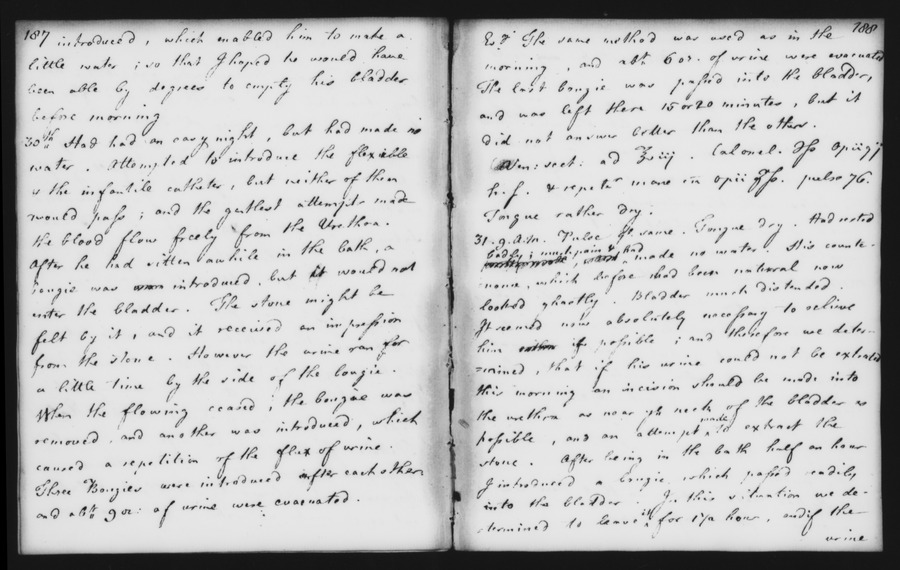 187
introduced, which enabled him to make a
little water; so that I hoped he would have
been able by degrees to empty his bladder
before morning
30th Had had an easy night, but had made no
water. Attempted to introduce the flexible
& the infantile catheter, but neither of them
would pass; and the gentlest attempts made
the blood flow freely from the Urethra.
After he had sitten awhile in the bath, a
bougie was introduced, but it would not
enter the bladder. The stone might be
felt by it, and it received an impression
from the stone. However the urine ran for
a little time by the side of the bougie.
When the flowing ceased; the bougie was
removed, and another was introduced, which
caused a repetition of the flux of urine.
Three Bougies were introduced after each other
and abt. 9 oz: of urine were evacuated.
188
The same method was used as in the
morning, and abt. 6 oz. of urine were evacuated
The last bougie was passed into the bladder,
and was left there 15 or 20 minutes, but it
did not answer better than the others.
Ven: sect: ad ℥viij. Calomel. opii
h.f. & repetr mane opii pulse 76.
Tongue rather dry.
31. 9. A.m. Pulse the same. Tongue dry. Had rested
badly; much pain & had made no water. His counte-
nance, which before had been natural now
looked ghastly. Bladder much distended.
It seemed now absolutely necessary to relieve
him if possible; and therefore we deter-
=mined, that if his urine could not be extracted
this morning an incision should be made into
the urethra as near the neck of the bladder as
possible, and an attempt made to extract the
stone. After being in the bath half an hour
I introduced a bougie, which passed readily
into the bladder. In this situation we de-
-termined to leave it for 1/2 hour, and if the
urine